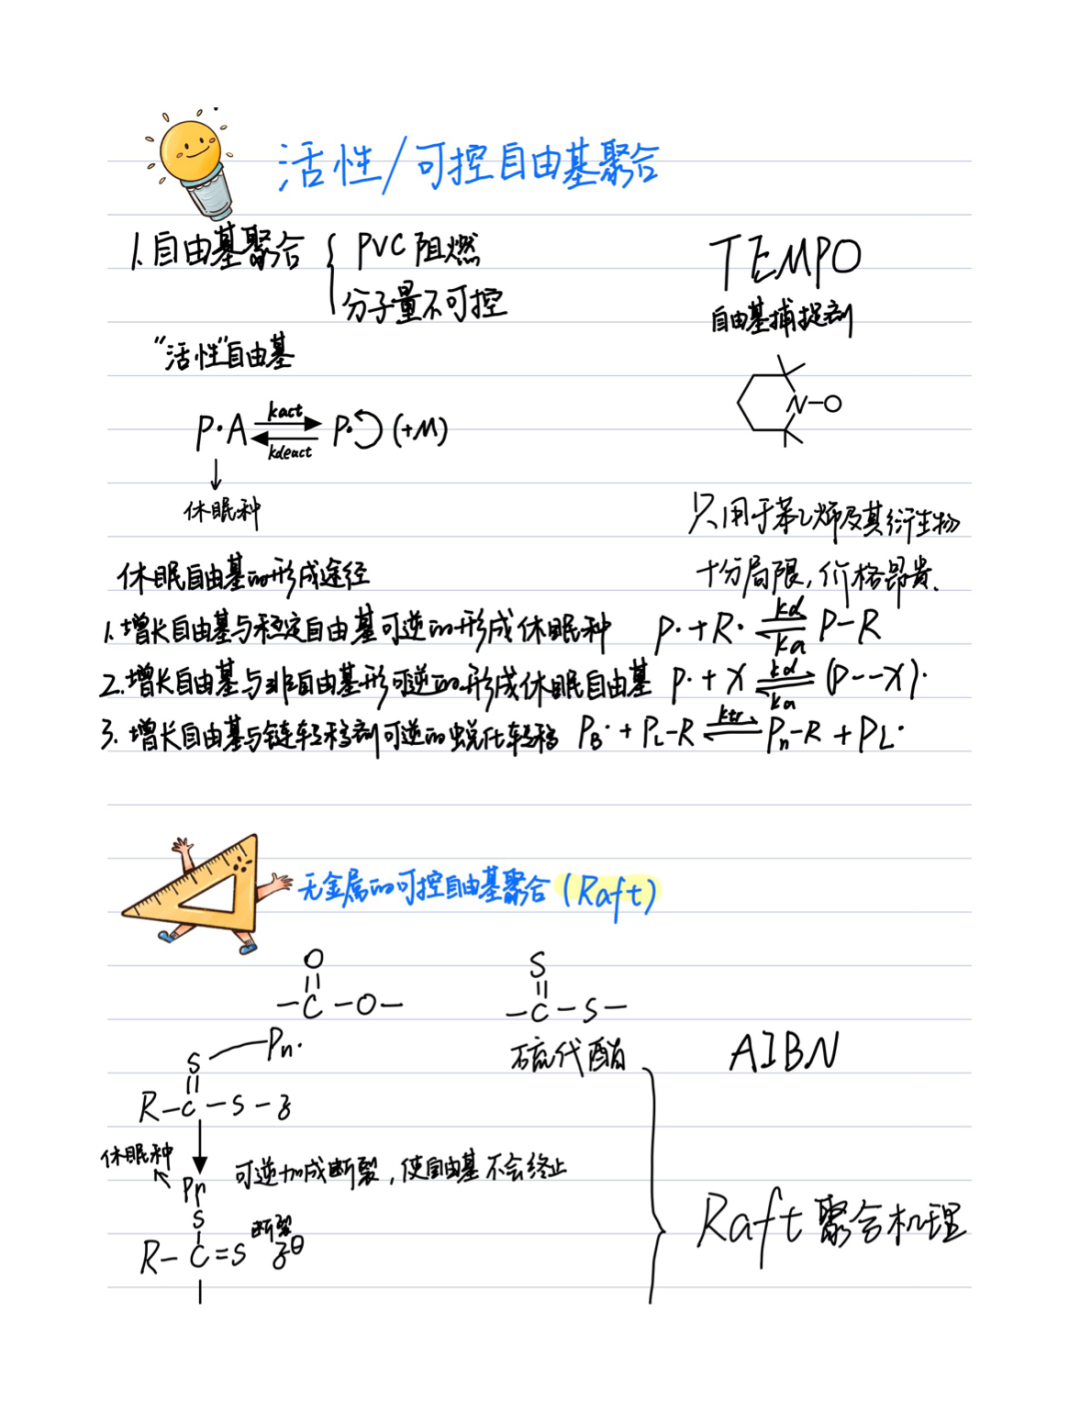 活性/可控自由基聚合
1.自由基聚合 { PVC阻燃
分子量不可控
TEMPO
自由基捕捉剂
"活性"自由基
N-O
P·A kact kdeact P· (+M)
休眠种
只用于苯乙烯及其衍生物
十分局限,价格昂贵.
休眠自由基的形成途径
1.增长自由基与稳定自由基可逆的形成休眠种 P·+R· kd ka P-R
2.增长自由基与非自由基形可逆的形成休眠自由基 P·+X kd ka (P--X)·
3.增长自由基与链转移剂可逆的蜕化转移 P·+PL-R ktr Pn-R+PL·
无金属的可控自由基聚合(Raft)
O
-C-O-
S
-C-S-
硫代酯
AIBN
Pn·
S
R-C-S-
休眠种
可逆加成断裂,使自由基不会终止
Pn
S
断裂
R-C=S
Raft聚合机理